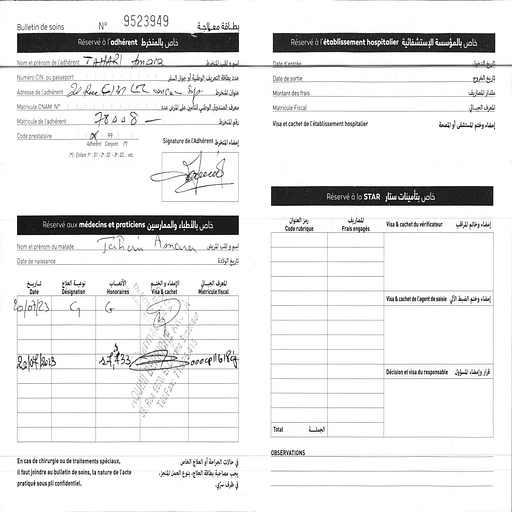 Bulletin de soins N° 9523949 بطاقة معالجة
Réservé à l'adhérent خاص بالمنخرط
Nom et prénom de l'adhérent TAHARI Amara إسم و لقب المنخرط
Numéro CIN ou passeport عدد بطاقة التعريف الوطنية أو جواز السفر
Adresse de l'adhérent عنوان المنخرط
Matricule CNAM N° معرف الصندوق الوطني للتأمين على المرض عدد
Matricule de l'adhérent 78008 رقم المنخرط
Code prestataire 99
Adhérent Conjoint (*)
(*) : Enfant 1er : 01 - 2e : 02 - 3e : 03... etc
Signature de l'Adhérent إمضاء المنخرط
Réservé aux médecins et praticiens خاص بالأطباء والممارسين
Nom et prénom du malade Tahari Amara اسم و لقب المريض
Date de naissance تاريخ الولادة
تاريخ نوعية العلاج الأتعاب الإمضاء و الختم المعرف الجبائي
Date Désignation Honoraires Visa & cachet Matricule fiscal
20/07/23 G G
20/07/2023 27,733
En cas de chirurgie ou de traitements spéciaux,
il faut joindre au bulletin de soins, la nature de l'acte
pratiqué sous pli confidentiel.
في حالات الجراحة أو العلاج الخاص
يجب مصاحبة بطاقة العلاج، بنوع العمل المنجز،
في ظرف سري.
Réservé à l'établissement hospitalier خاص بالمؤسسة الإستشفائية
Date d'entrée تاريخ الدخول
Date de sortie تاريخ الخروج
Montant des frais مقدار المصاريف
Matricule Fiscal المعرف الجبائي
Visa et cachet de l'établissement hospitalier إمضاء وختم المستشفى أو المصحة
Réservé à la STAR خاص بتأمينات ستار
رمز العنوان المصاريف
Code rubrique Frais engagés
Visa & cachet du vérificateur إمضاء وخاتم المراقب
Visa & cachet de l'agent de saisie إمضاء وختم الضبط الآلي
Décision et visa du responsable قرار وإمضاء المسؤول
Total الجملة
OBSERVATIONS